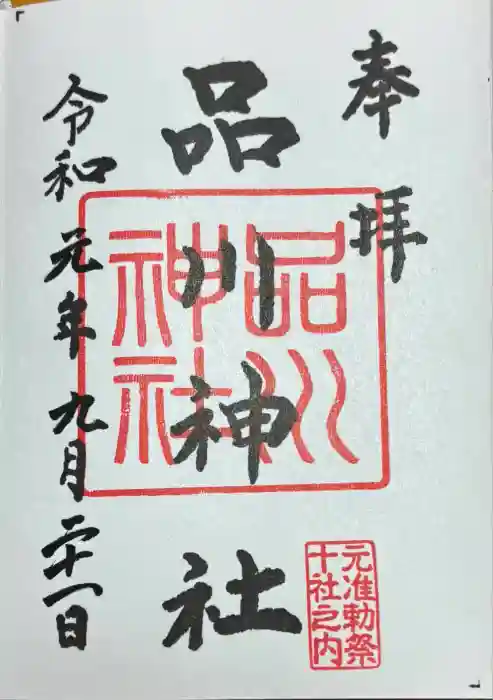 奉拝
品川神社
令和元年九月二十一日
品川
神社
元准勅祭
十社之内